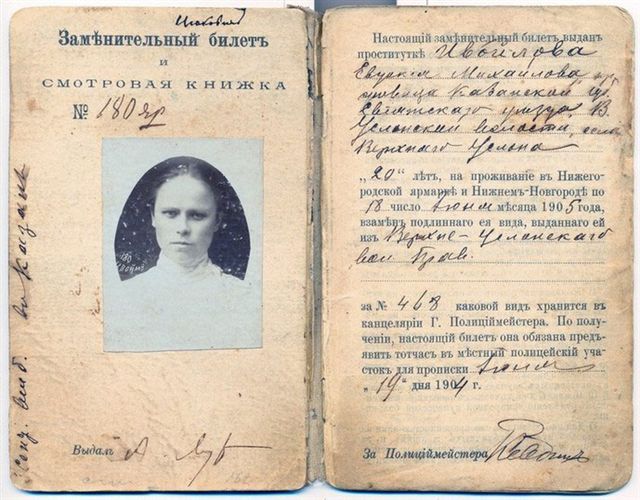 Замѣнительный билетъ
и
СМОТРОВАЯ КНИЖКА
№ 180 яр
Выдалъ
Настоящій замѣнительный билетъ выданъ
проституткѣ Ивойлова
Евдокія Михайлова кр.
дѣвица Казанской губ.
Свіяжскаго уѣзда, В.
Услонской волости, села
Верхняго Услона
„20“ лѣтъ, на проживаніе въ Нижего-
родской ярмаркѣ и Нижнемъ-Новгородѣ по
18 число Іюня мѣсяца 1905 года,
взамѣнъ подлиннаго ея вида, выданнаго ей
изъ Верхне-Услонскаго
вол. Прав.
за № 468 каковой видъ хранится въ
канцеляріи Г. Полиціймейстера. По полу-
ченіи, настоящій билетъ она обязана предъ-
явить тотчасъ въ мѣстный полицейскій уча-
стокъ для прописки Іюня
„19“ дня 1904 г.
За Полиціймейстера